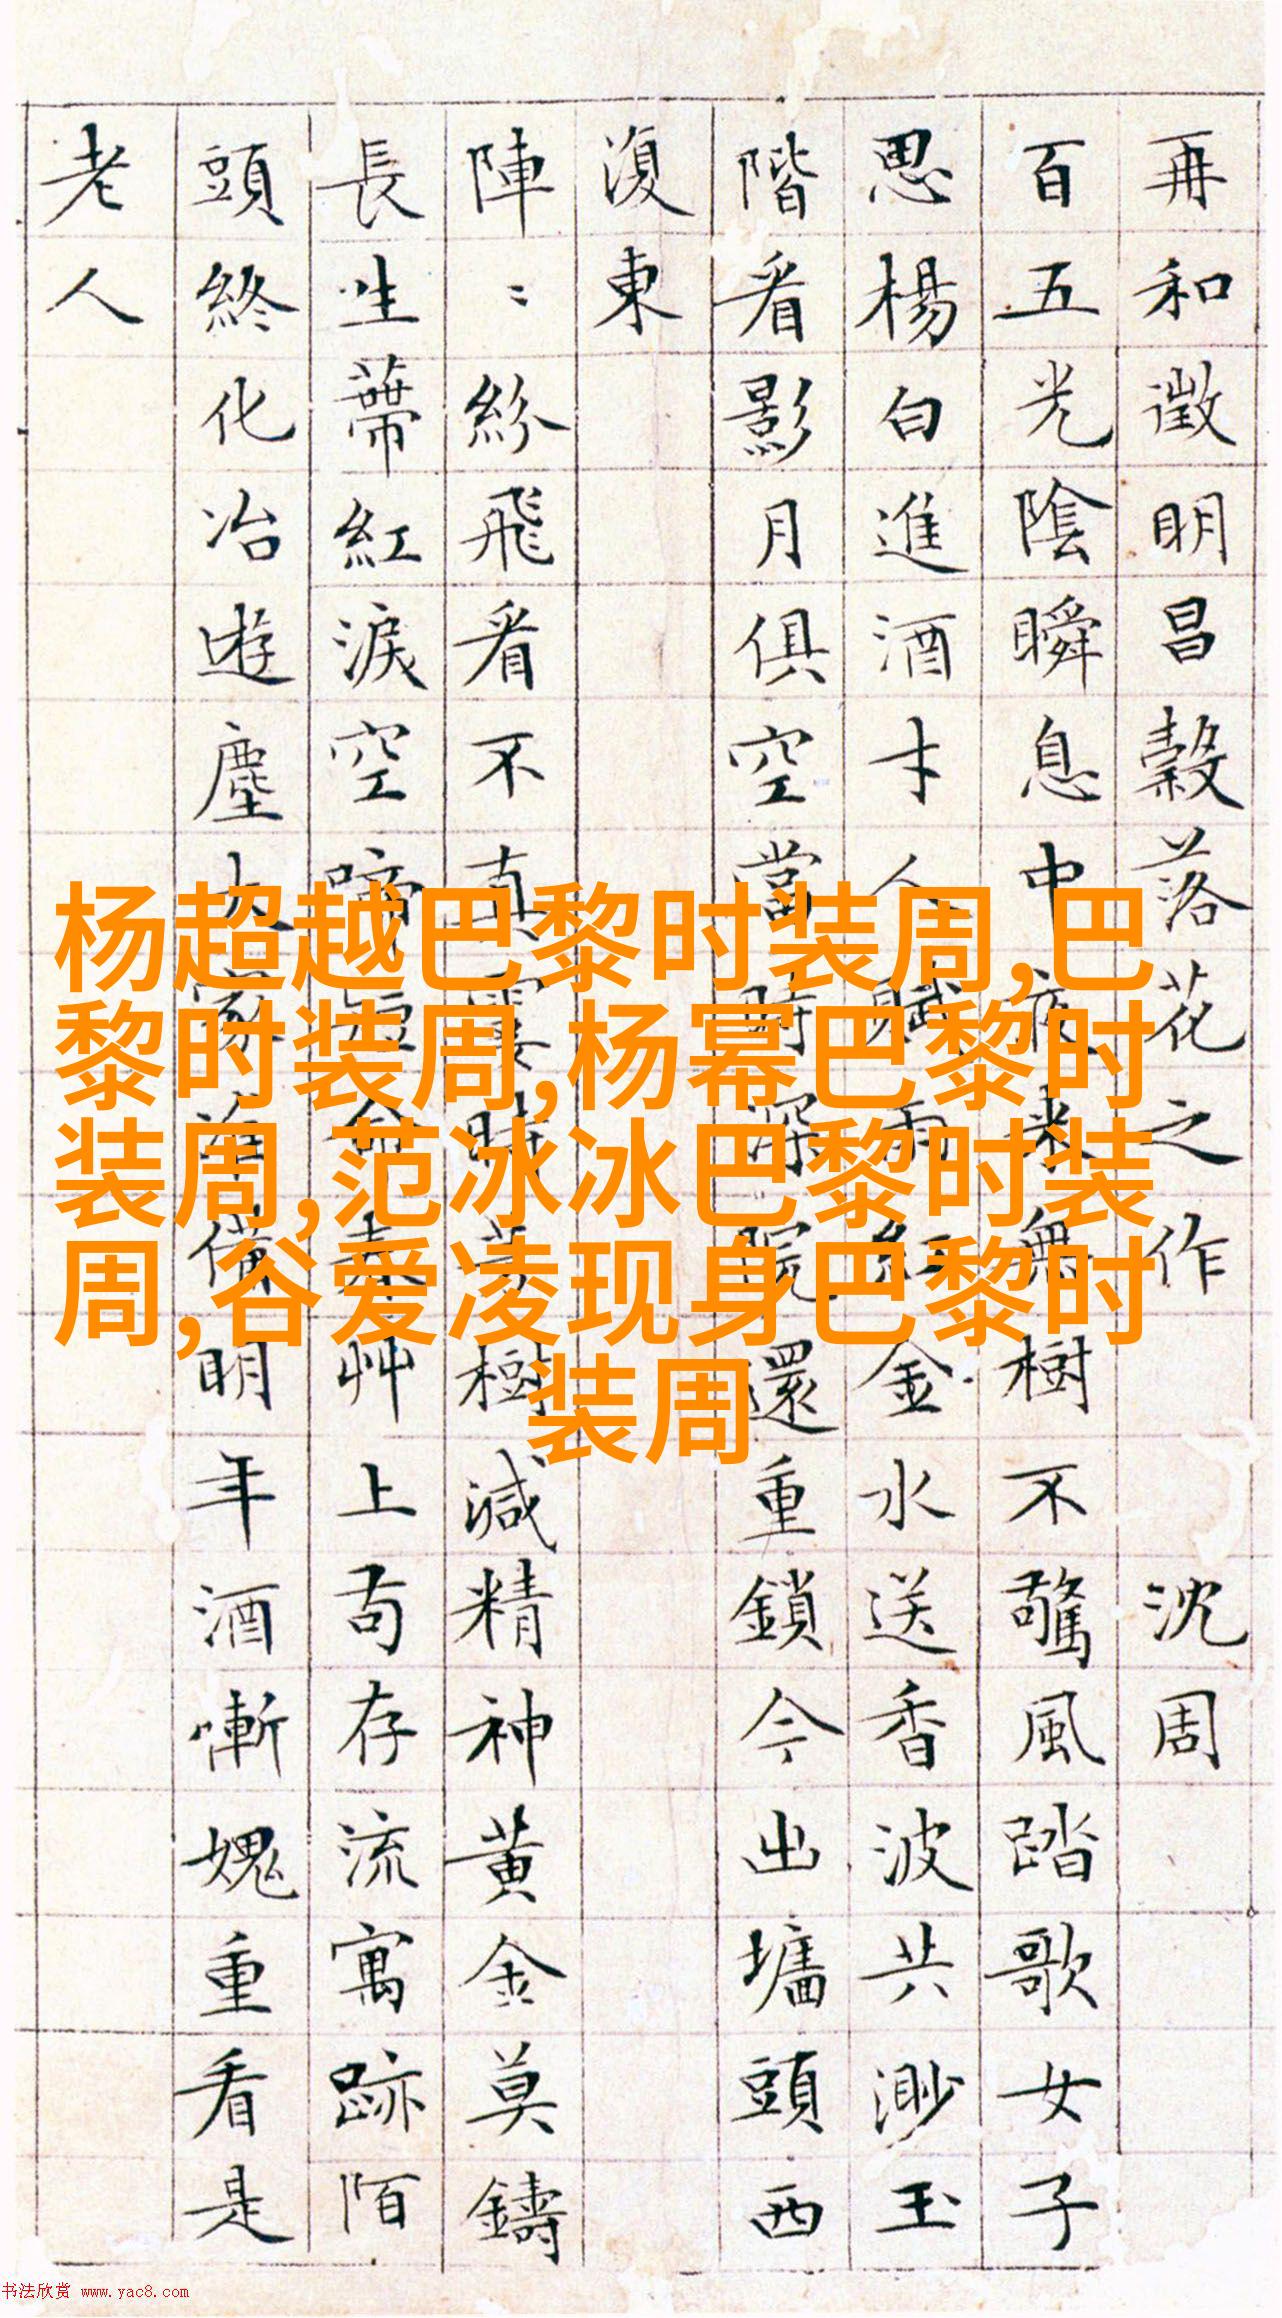 再和徵明昌穀落花之作 沈周
百五光陰瞬息中夜来無樹不驚風踏歌女子
思楊白進酒才人賦雨紅金水送香波共渺玉
階看影月俱空當時深院還重鎖今出墻頭西
復東
陣〻紛飛看不真霎時芳樹減精神黃金莫鑄
長生蒂紅淚空啼短命春艸上苟存流寓跡陌
頭終化冶遊塵大家準備明年酒慚媿重看是
老人
杨超越巴黎时装周,巴
黎时装周,杨幂巴黎时
装周,范冰冰巴黎时装
周,谷爱凌现身巴黎时
装周
书法欣赏 www.yac8.com